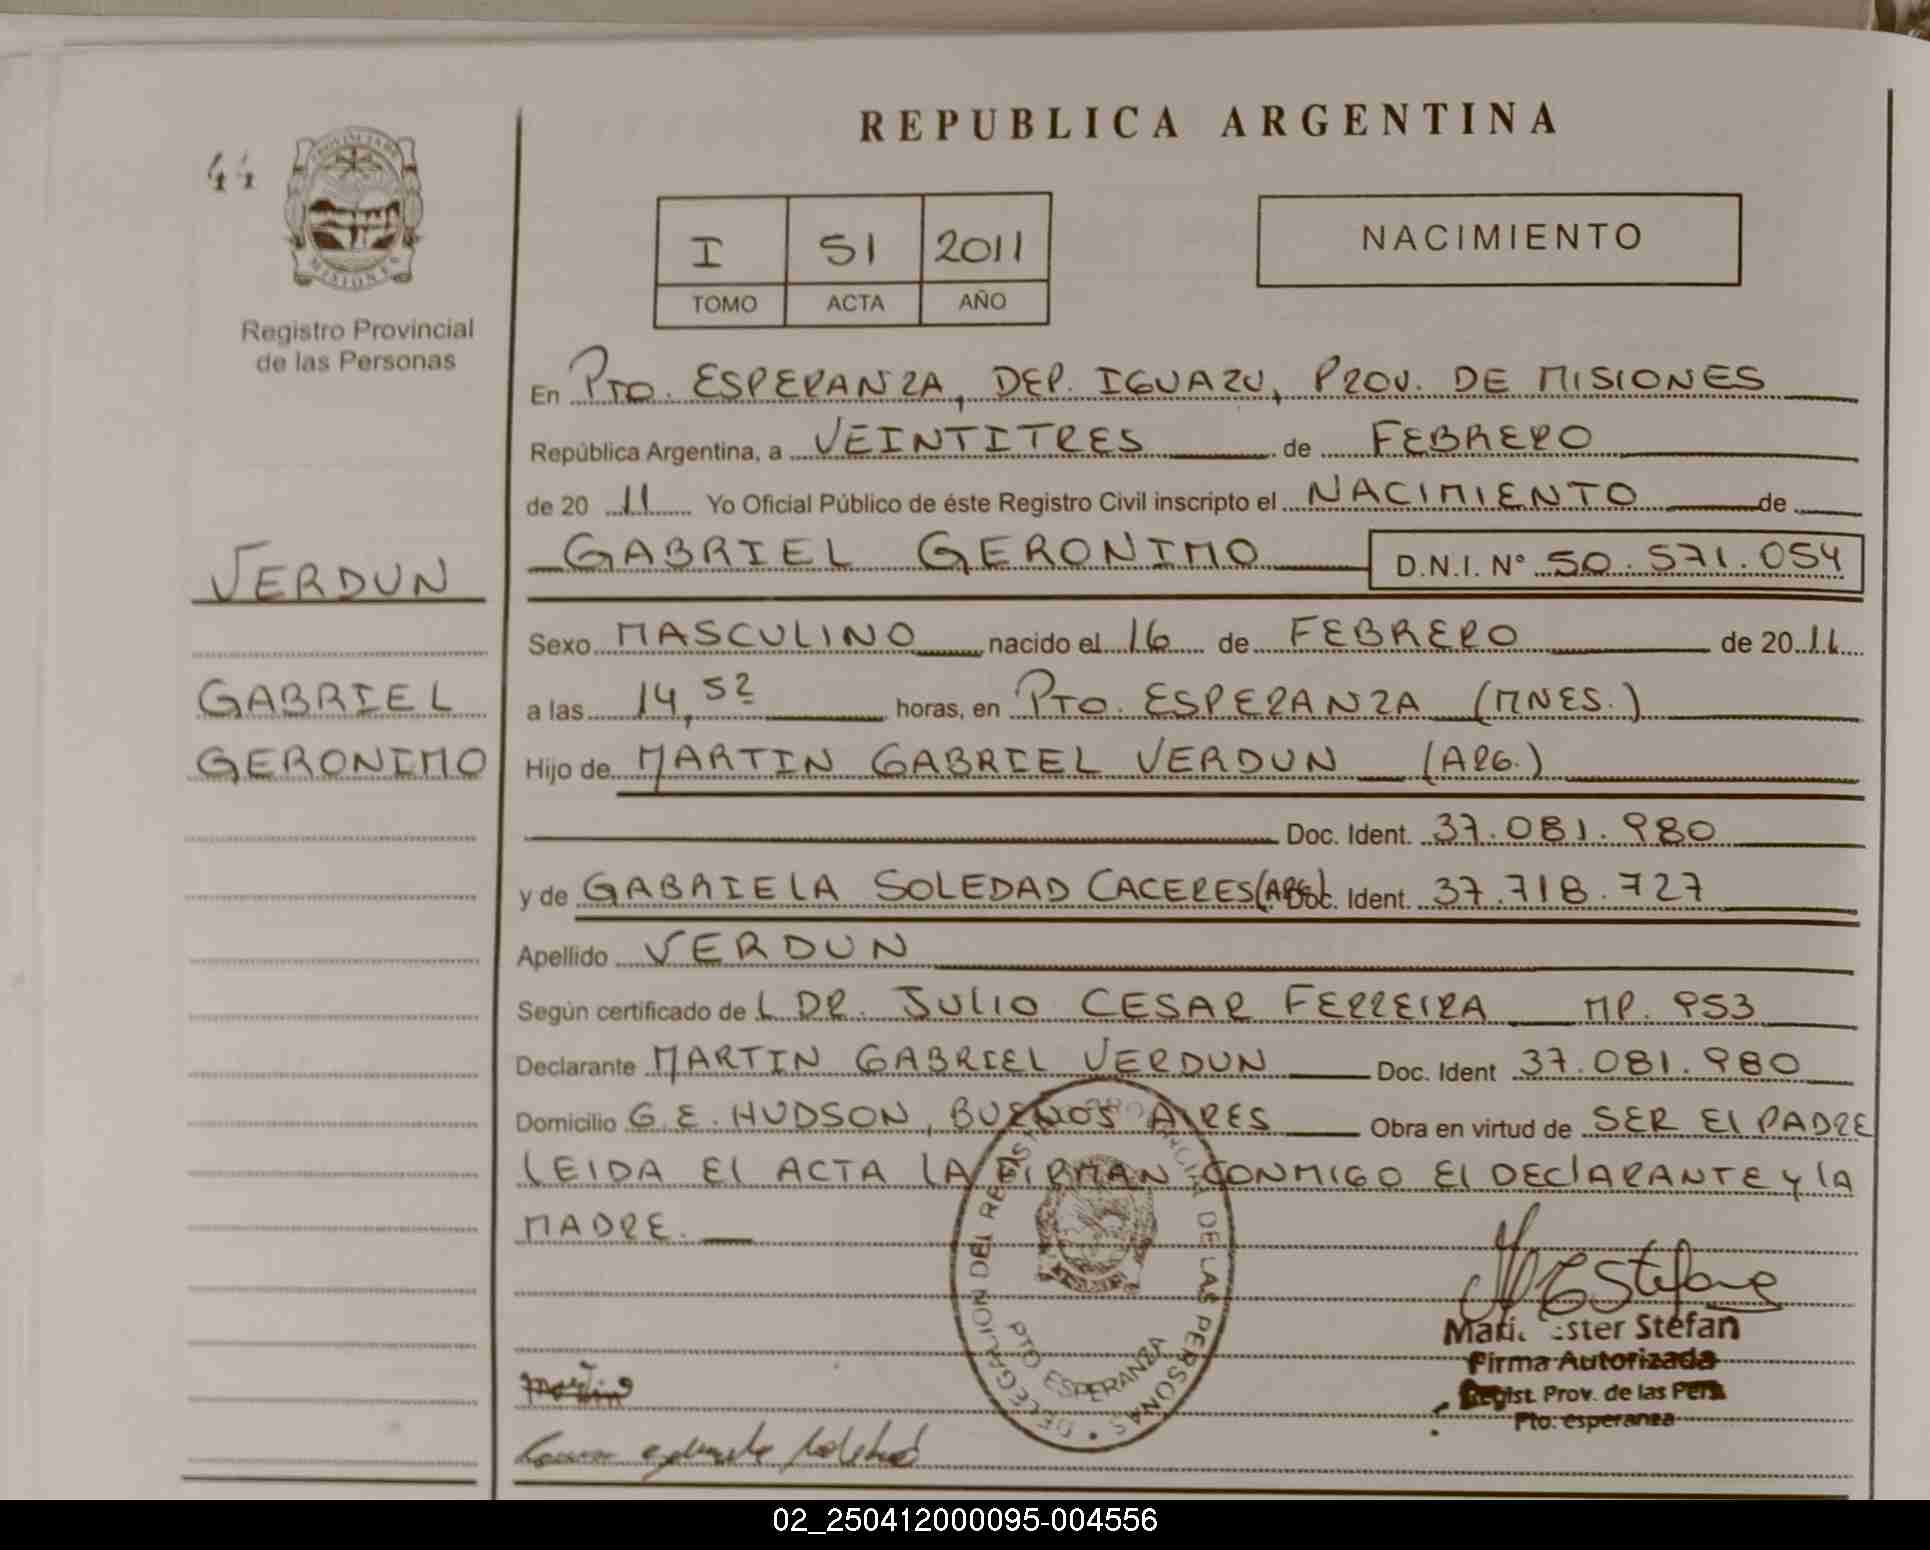 REPUBLICA ARGENTINA
44
PROVINCIA DE
MISIONES
Registro Provincial
de las Personas
I 51 2011
TOMO ACTA AÑO
NACIMIENTO
En PTO. ESPERANZA, DEP. IGUAZU, PROV. DE MISIONES
República Argentina, a VEINTITRES de FEBRERO
de 20 11 Yo Oficial Público de éste Registro Civil inscripto el NACIMIENTO de
GABRIEL GERONIMO D.N.I. N° 50.571.054
VERDUN
GABRIEL
GERONIMO
Sexo MASCULINO nacido el 16 de FEBRERO de 2011
a las 14,52 horas, en PTO. ESPERANZA (MNES.)
Hijo de MARTIN GABRIEL VERDUN (ARG.)
Doc. Ident. 37.081.980
y de GABRIELA SOLEDAD CACERES (ARG.) Doc. Ident. 37.718.727
Apellido VERDUN
Según certificado de L DR. JULIO CESAR FERREIRA MP. 953
Declarante MARTIN GABRIEL VERDUN Doc. Ident 37.081.980
Domicilio G.E. HUDSON, BUENOS AIRES Obra en virtud de SER El PADRE
LEIDA El ACTA LA FIRMAN CONMIGO El DEClARANTE y lA
MADRE.
DELEGACION DEL REGISTRO PROVINCIAL DE LAS PERSONAS
PTO ESPERANZA
MEStefan
Ester Stefan
Firma Autorizada
Regist. Prov. de las Pers
Pto. esperanza
Martin
02_250412000095-004556